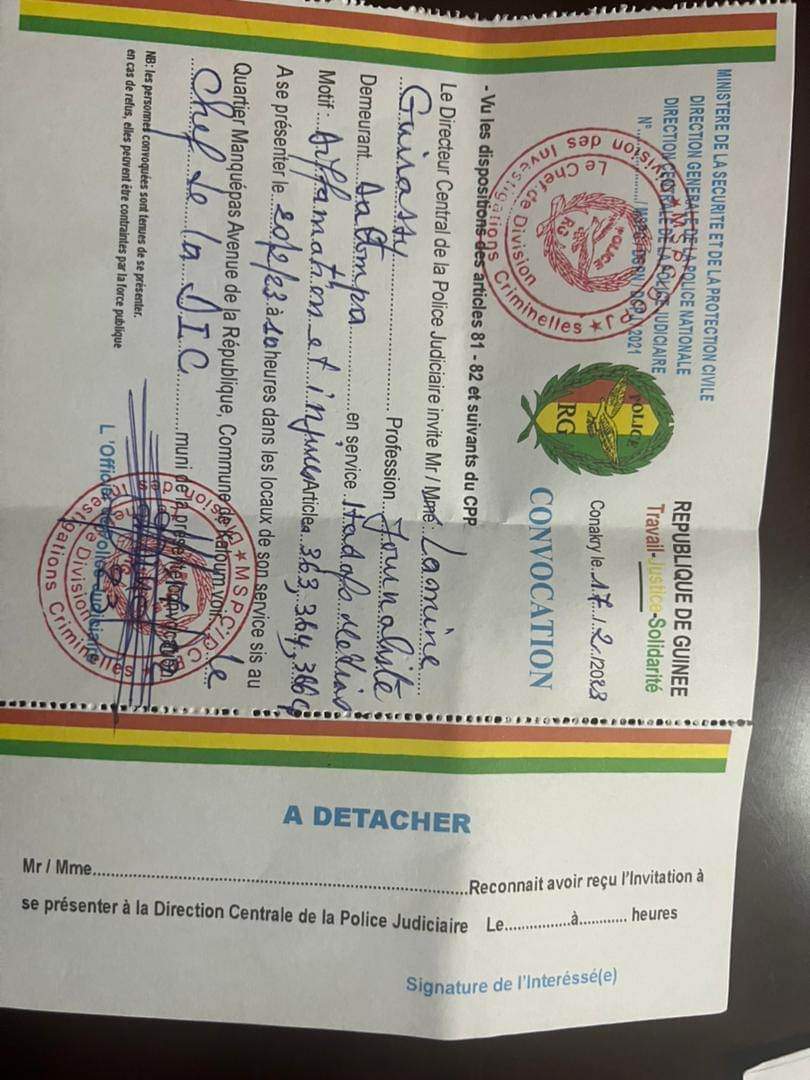 MINISTERE DE LA SECURITE ET DE LA PROTECTION CIVILE
DIRECTION GENERALE DE LA POLICE NATIONALE
DIRECTION CENTRALE DE LA POLICE JUDICIAIRE
N° 2021
REPUBLIQUE DE GUINEE
Travail-Justice-Solidarité
Conakry le 17/2/2023
POLICE
RG
CONVOCATION
- Vu les dispositions des articles 81 - 82 et suivants du CPP
Le Directeur Central de la Police Judiciaire invite Mr / Mme Lamine
Guirassy Profession Journaliste
Demeurant en service
Motif : Diffamation et injures Articles 363, 364,
A se présenter le à 10 heures dans les locaux de son service sis au
Quartier Manquépas Avenue de la République, Commune de Kaloum voir le
Chef de la DIC muni de la présente convocation
NB: les personnes convoquées sont tenues de se présenter.
en cas de refus, elles peuvent être contraintes par la force publique
L 'Officier de Police Judiciaire
Division des Investigations Criminelles
Le Chef de Division
A DETACHER
Mr / Mme Reconnait avoir reçu l'Invitation à
se présenter à la Direction Centrale de la Police Judiciaire Le à heures
Signature de l'Interéssé(e)